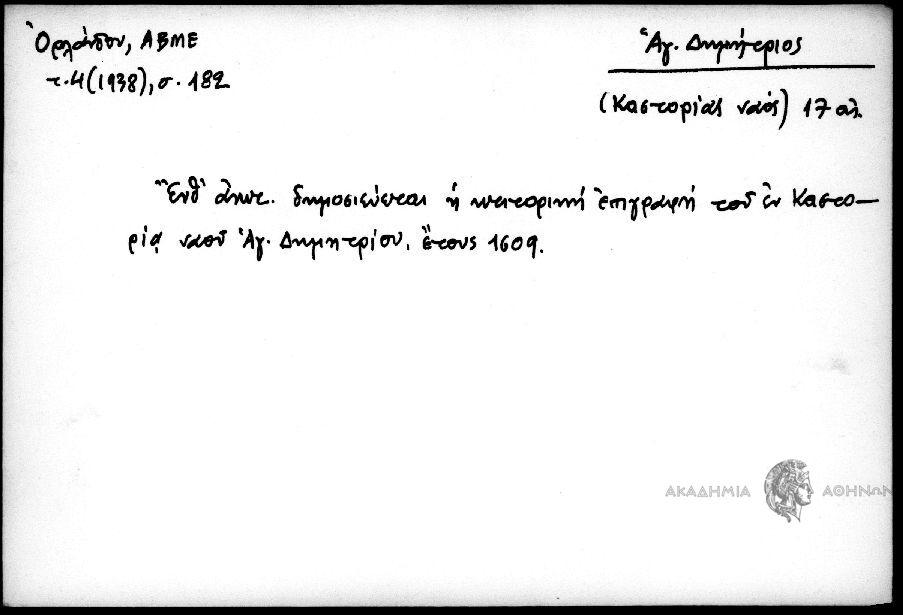 Ὀρλάνδου, ΑΒΜΕ
τ. 4 (1938), σ. 182
Ἁγ. Δημήτριος
(Καστορίας ναός) 17 αἰ.
Ἔνθ' ἀνωτ. δημοσιεύεται ἡ κτιτορική ἐπιγραφή τοῦ ἐν Καστο-
ρίᾳ ναοῦ Ἁγ. Δημητρίου, ἔτους 1609.
ΑΚΑΔΗΜΙΑ ΑΘΗΝΩΝ